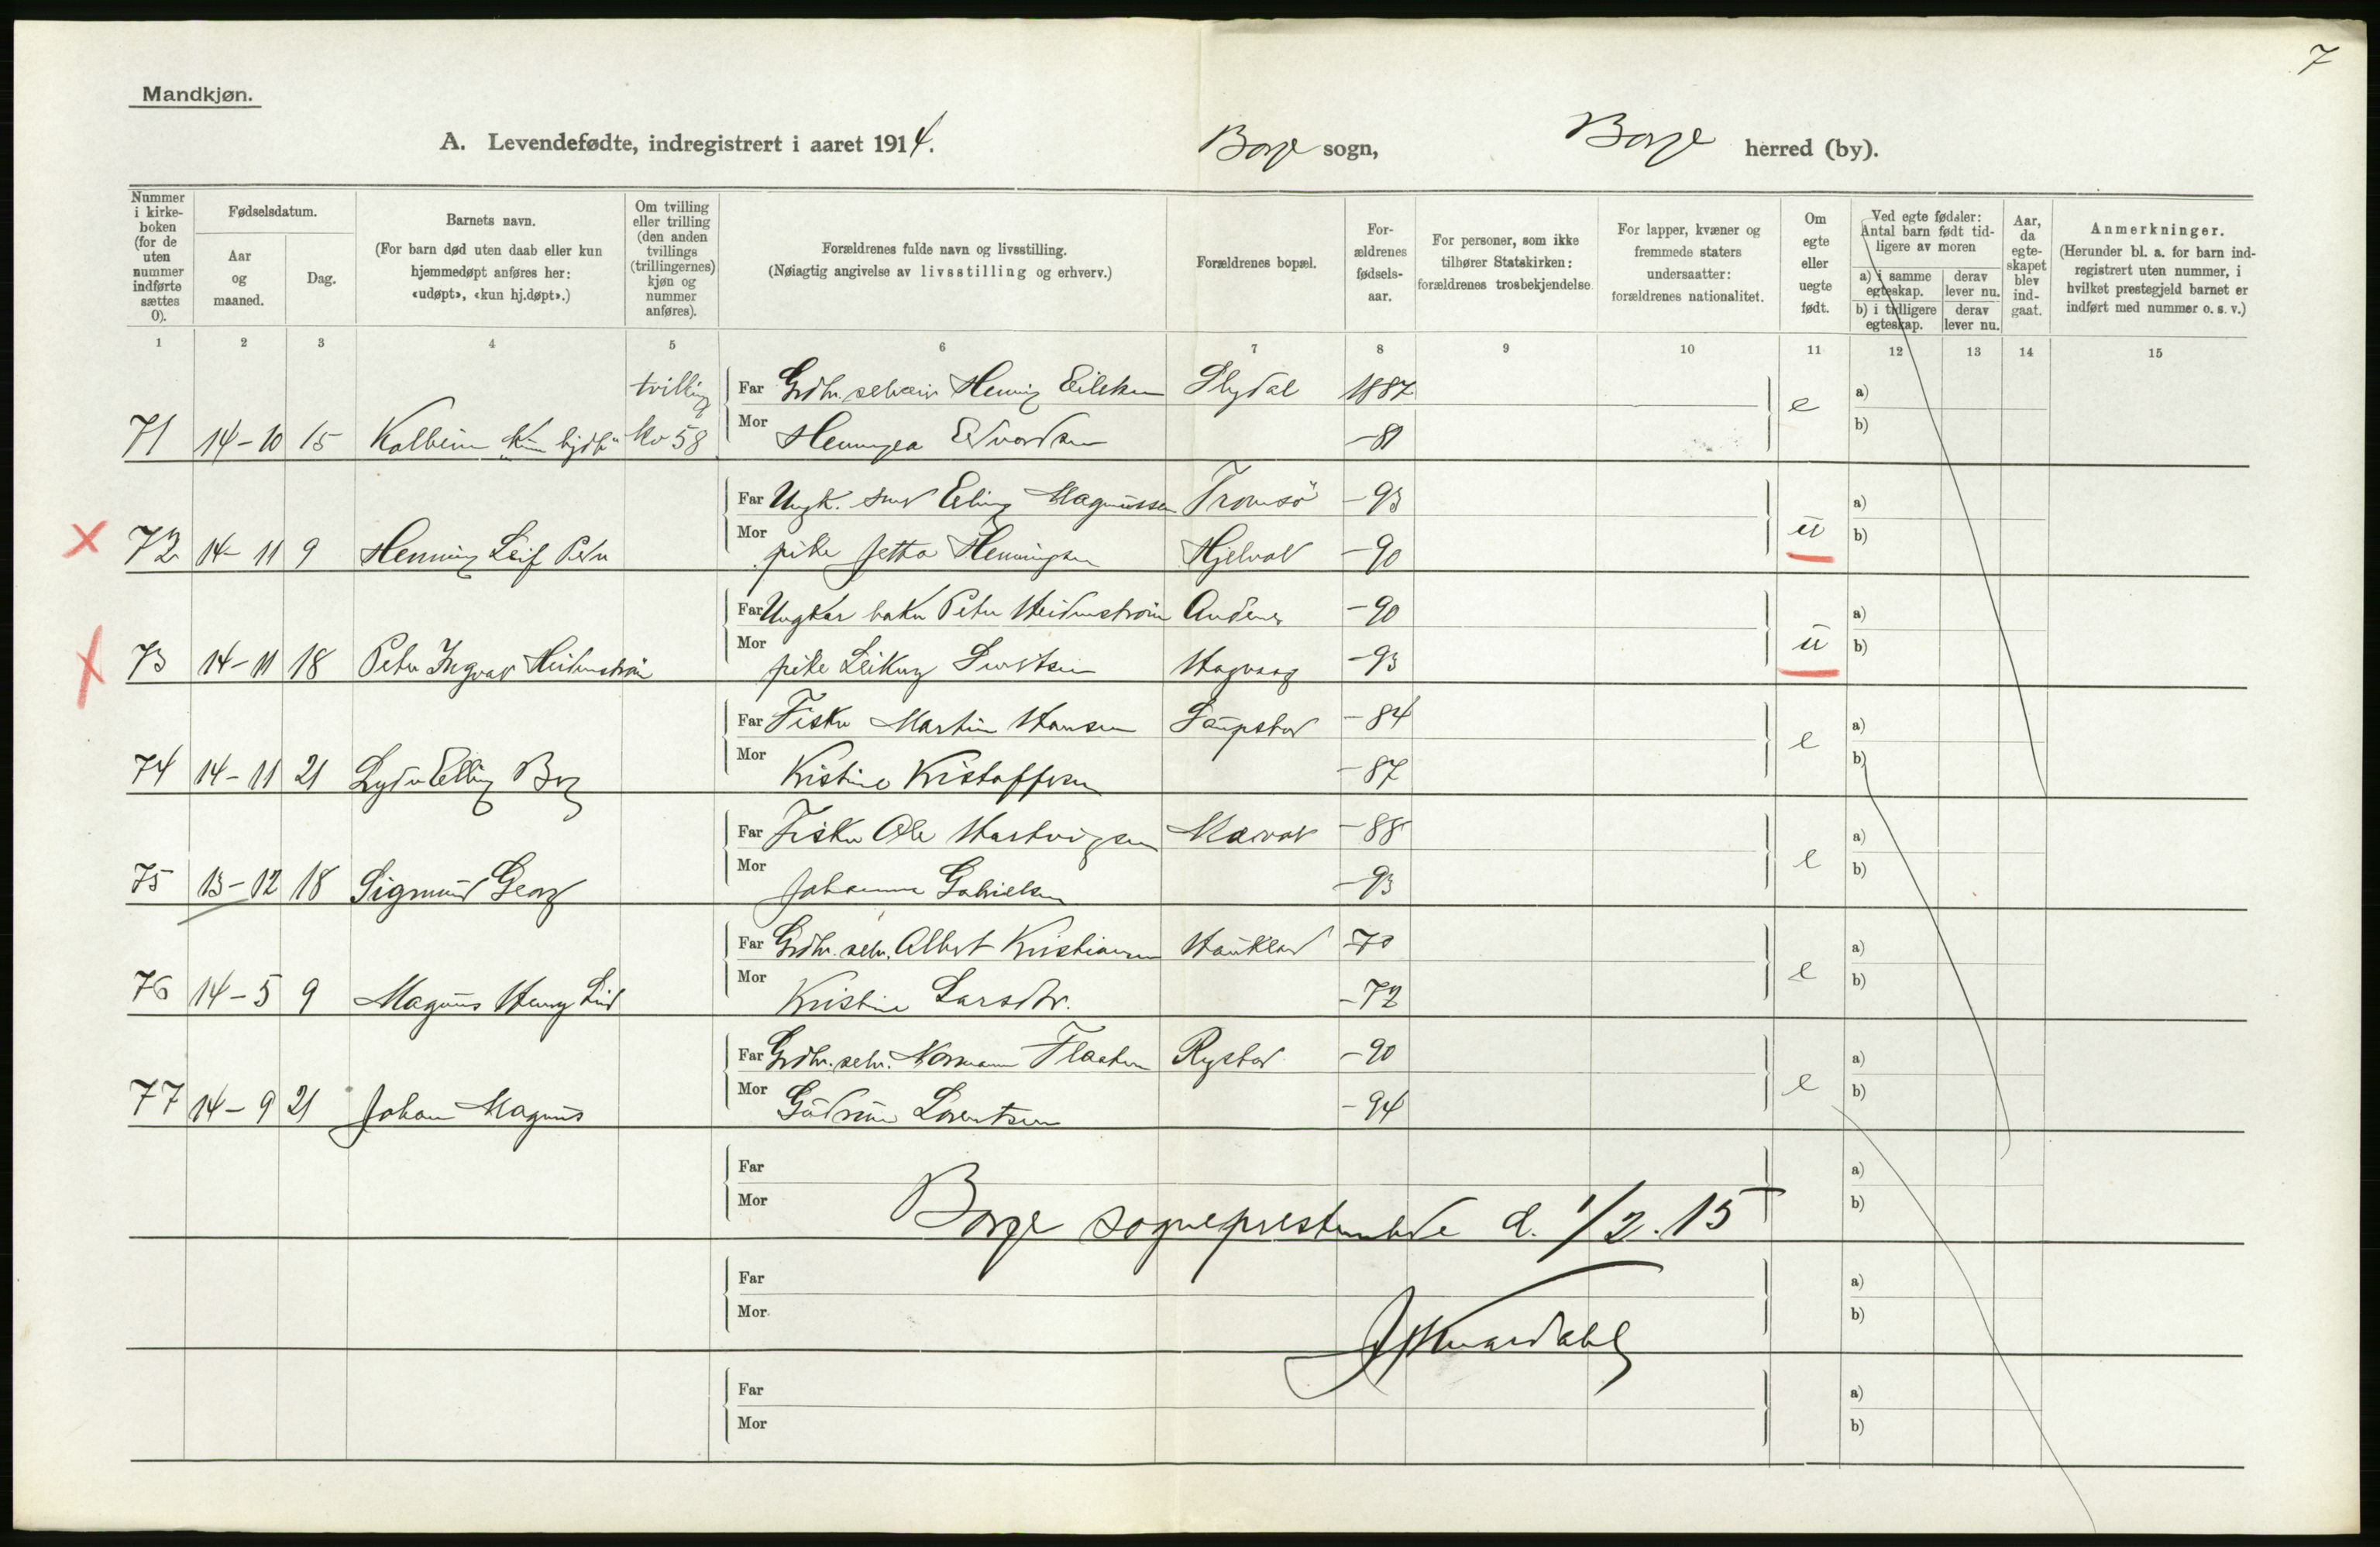 7
Mandkjøn.
A. Levendefødte, indregistrert i aaret 1914. Borge sogn, Borge herred (by).
Nummer i kirkeboken (for de uten nummer indførte sættes 0).
Fødselsdatum.
Aar og maaned.
Dag.
Barnets navn.
(For barn død uten daab eller kun hjemmedøpt anføres her: «udøpt», «kun hj.døpt».)
Om tvilling eller trilling (den anden tvillings (trillingernes) kjøn og nummer anføres).
Forældrenes fulde navn og livsstilling.
(Nøiagtig angivelse av livsstilling og erhverv.)
Forældrenes bopæl.
For-ældrenes fødsels-aar.
For personer, som ikke tilhører Statskirken: forældrenes trosbekjendelse.
For lapper, kvæner og fremmede staters undersaatter: forældrenes nationalitet.
Om egte eller uegte født.
Ved egte fødsler: Antal barn født tid-ligere av moren
a) i samme egteskap.
derav lever nu.
b) i tidligere egteskap.
derav lever nu.
Aar, da egte-skapet blev ind-gaat.
Anmerkninger.
(Herunder bl. a. for barn ind-registrert uten nummer, i hvilket prestegjeld barnet er indført med nummer o. s. v.)
1 2 3 4 5 6 7 8 9 10 11 12 13 14 15
tvilling Far Grdbr. selveier Henning Eilertsen 1887 a)
71 14-10 15 Kolbein "kun hjdp" kv 58 Mor Edvardsen -81 e b)
Far Ungk. Erling Magnussen Tromsö -93 a)
72 14-11 9 Henning Leif Peder Mor pike Jetta Henningsen Hjelvol -90 u b)
Far Ungkar baker Peter Heidenstrøm Andenes -90 a)
73 14-11 18 Peter Ingvar Heidenstrøm Mor pike -93 u b)
Far Fisker Martin Hansen -84 a)
74 14-11 21 Mor Kristine Kristoffersen -87 e b)
Far Fisker Ole Hartvigsen -88 a)
75 13-12 18 Sigmund Georg Mor Johanna Gabrielsen -93 e b)
Far Grdbr. selv. Albert Kristiansen Haukland -70 a)
76 14-5 9 Magnus Henry Mor Kristine Larsdtr. -72 e b)
Far Grdbr. selv. Normann Rystad -90 a)
77 14-9 21 Johan Magnus Mor Gudrun Lorentsen -94 e b)
Far a)
Mor b)
Borge sogneprestembede d. 1/2. 15
Far a)
Mor b)
Far a)
Mor b)